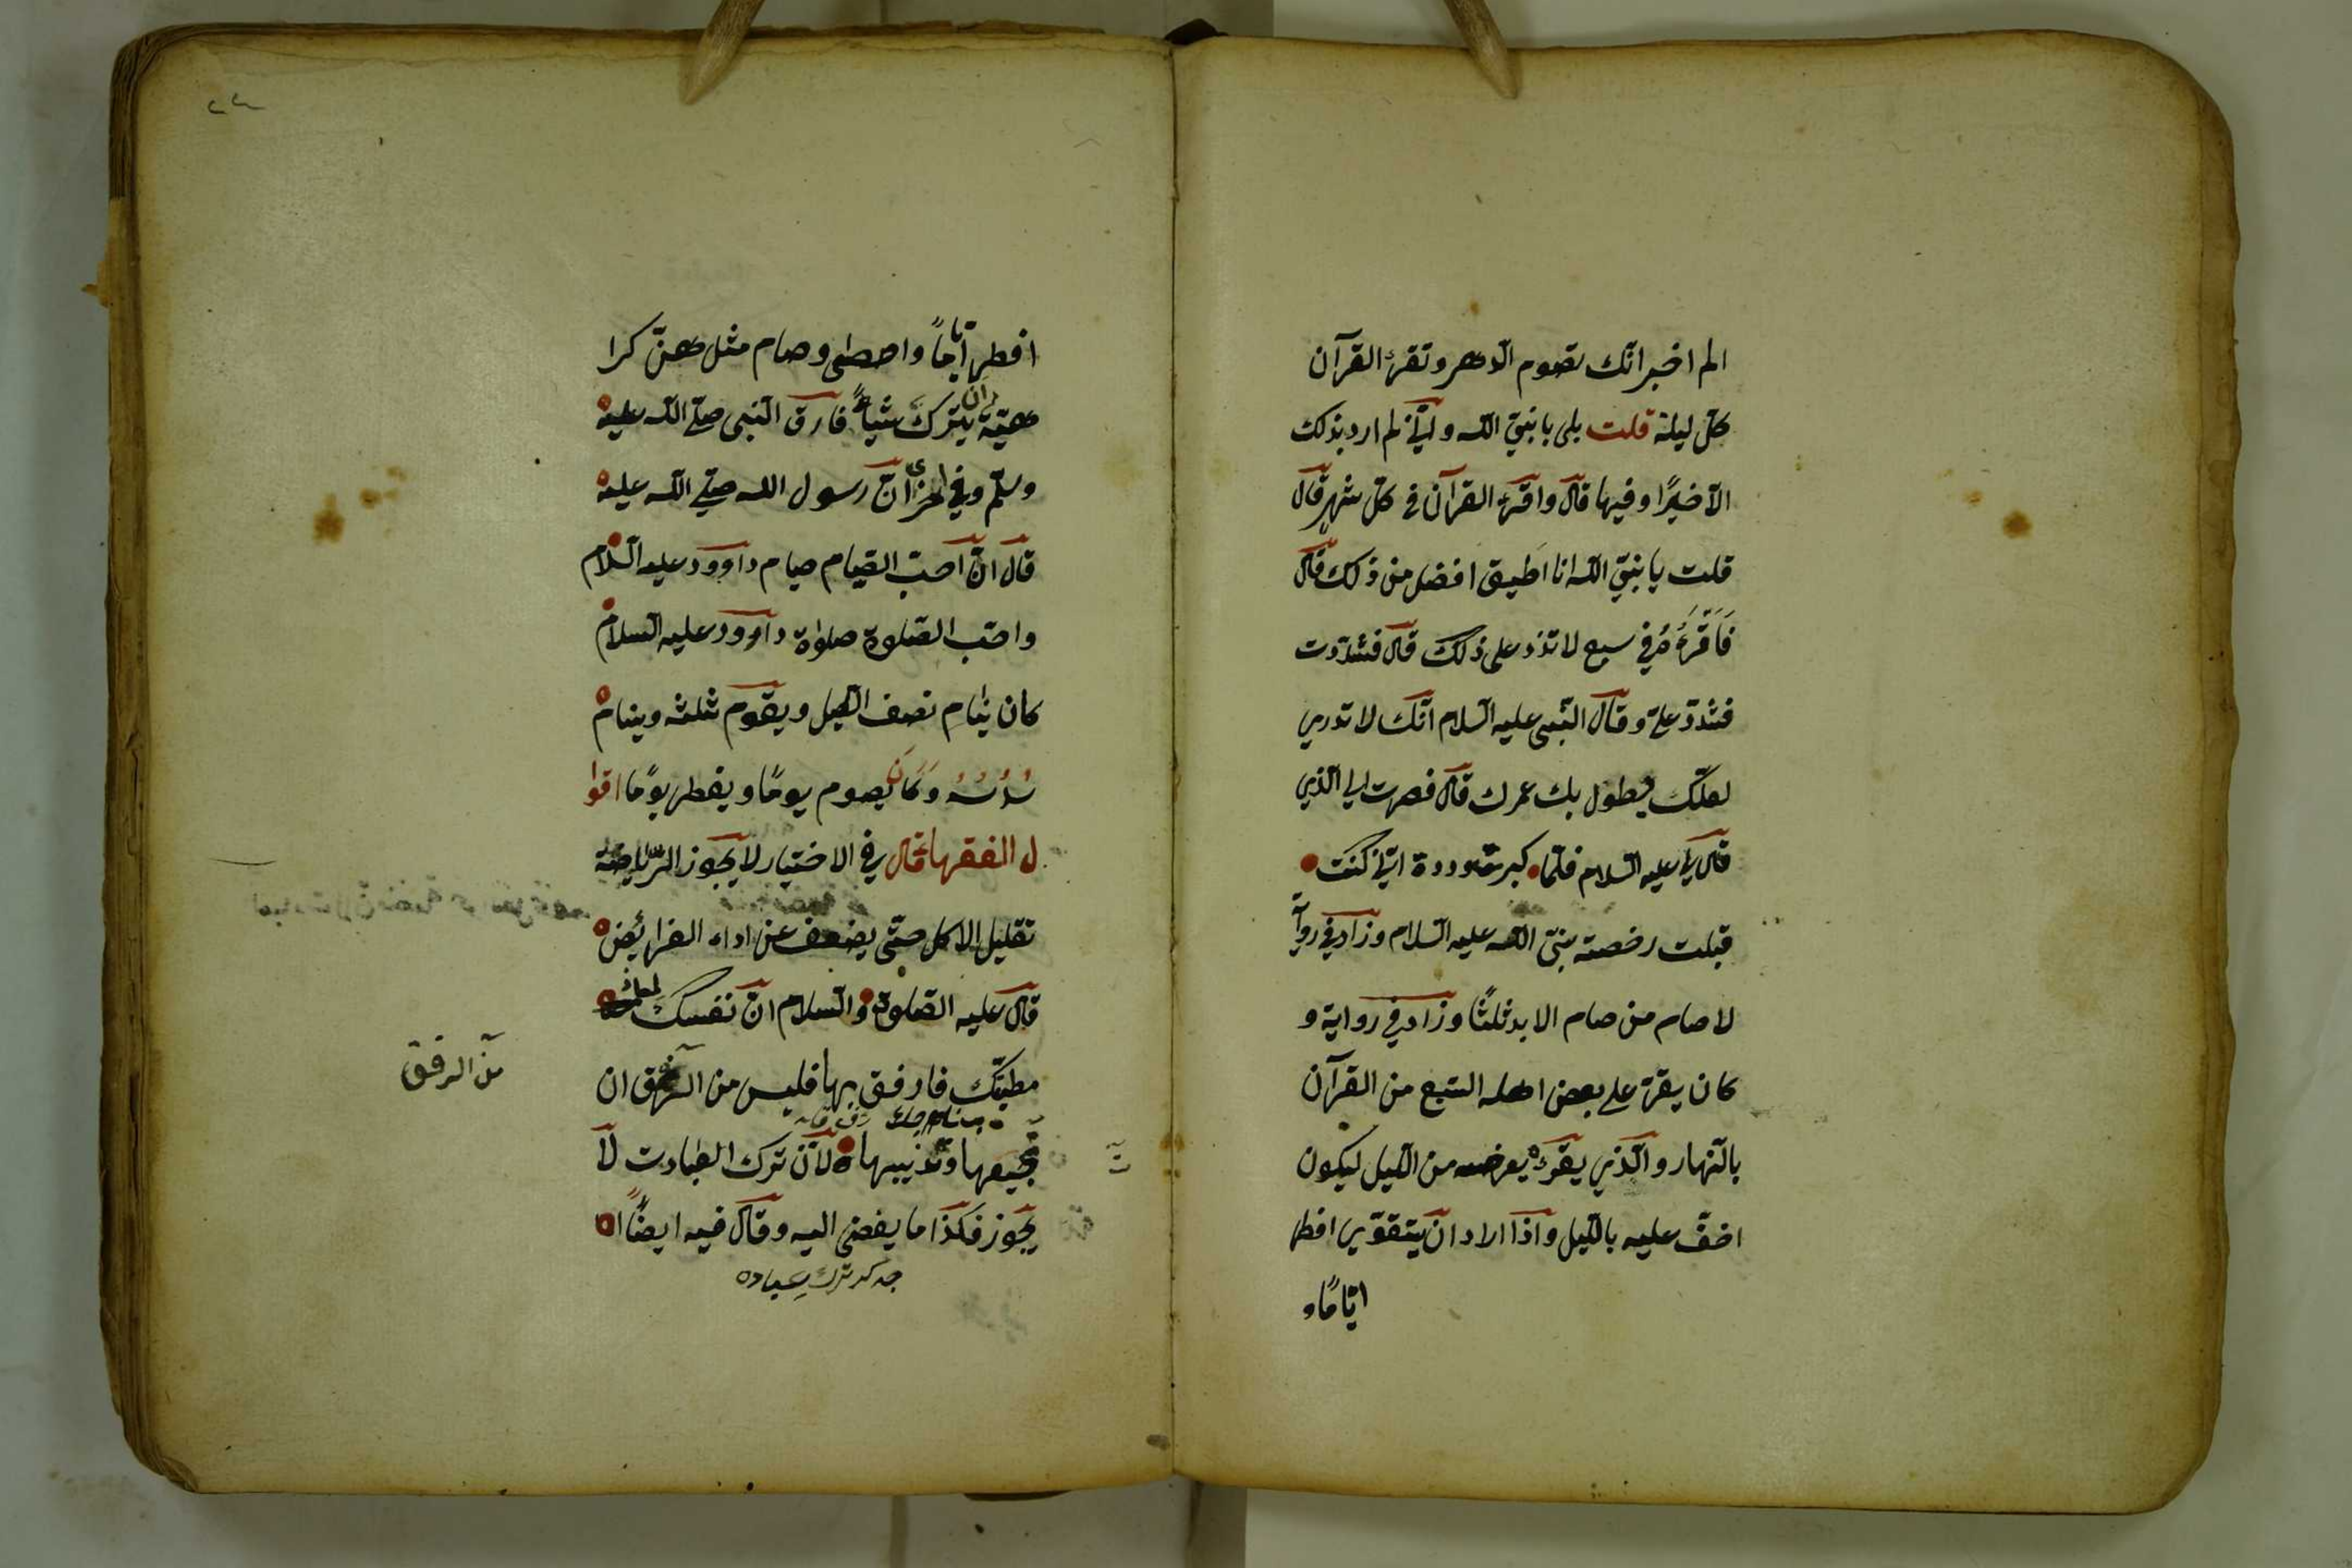 الم اخبر انّك تصوم الدهر وتقرء القرآن
كلّ ليلة قلت بلى يا نبيّ الله وانّي لم ارد بذلك
الّا خيرًا وفيها قال واقرء القرآن في كلّ شهر قال
قلت يا نبيّ الله انا اطيق افضل من ذلك قال
فَاَقْرَءْهُ في سبع لا تزد على ذلك قال فشدّدت
فشدّد عليّ وقال النّبي عليه السّلام انّك لا تدري
لعلّك يطول بك عمرك قال فصرت الى الّذي
قال لي عليه السّلام فلمّا كبرت وددت انّي كنت
قبلت رخصة نبيّ الله عليه السّلام وزاد في روآ
لا صام من صام الابد ثلثًا وزاد في رواية و
كان يقرء على بعض اهله السّبع من القرآن
بالنّهار والّذي يقرءه يعرضه من اللّيل ليكون
اخفّ عليه باللّيل واذا اراد ان يتقوّى افطر
ايّامًا و
افطر ايّامًا واحصى وصام مثلهنّ كرا
هيّة ان يترك شيأً فارق النّبي صلّى الله عليه
وسلّم وفي اخرى انّ رسول الله صلّى الله عليه
قال انّ احبّ الصّيام صيام داوود عليه السّلام
واحبّ الصّلوة صلوة داوود عليه السّلام
كان ينام نصف اللّيل ويقوم ثلثه وينام
سُدُسَهُ وَكَانَ يصوم يومًا ويفطر يومًا اقوا
ل الفقهاء قال في الاختيار لا يجوز الرّياضة
تقليل الاكل حتّى يضعف عن اداء الفرائض
قال عليه الصّلوة والسّلام انّ نفسك
مطيّتك فارفق بها فليس من الرّفق ان
من الرفق
تجيعها وتذيبها ولانّ ترك العبادت لا
يجوز فكذا ما يفضي اليه وقال فيه ايضًا